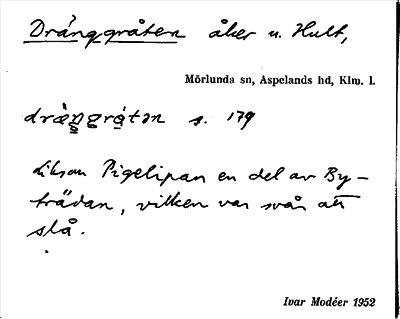 Dränggråten åker u. Hult,
Mörlunda sn, Aspelands hd, Klm. l.
s. 179
Liksom Pigelipan en del av By-
trädan, vilken var svår att
slå.
Ivar Modéer 1952